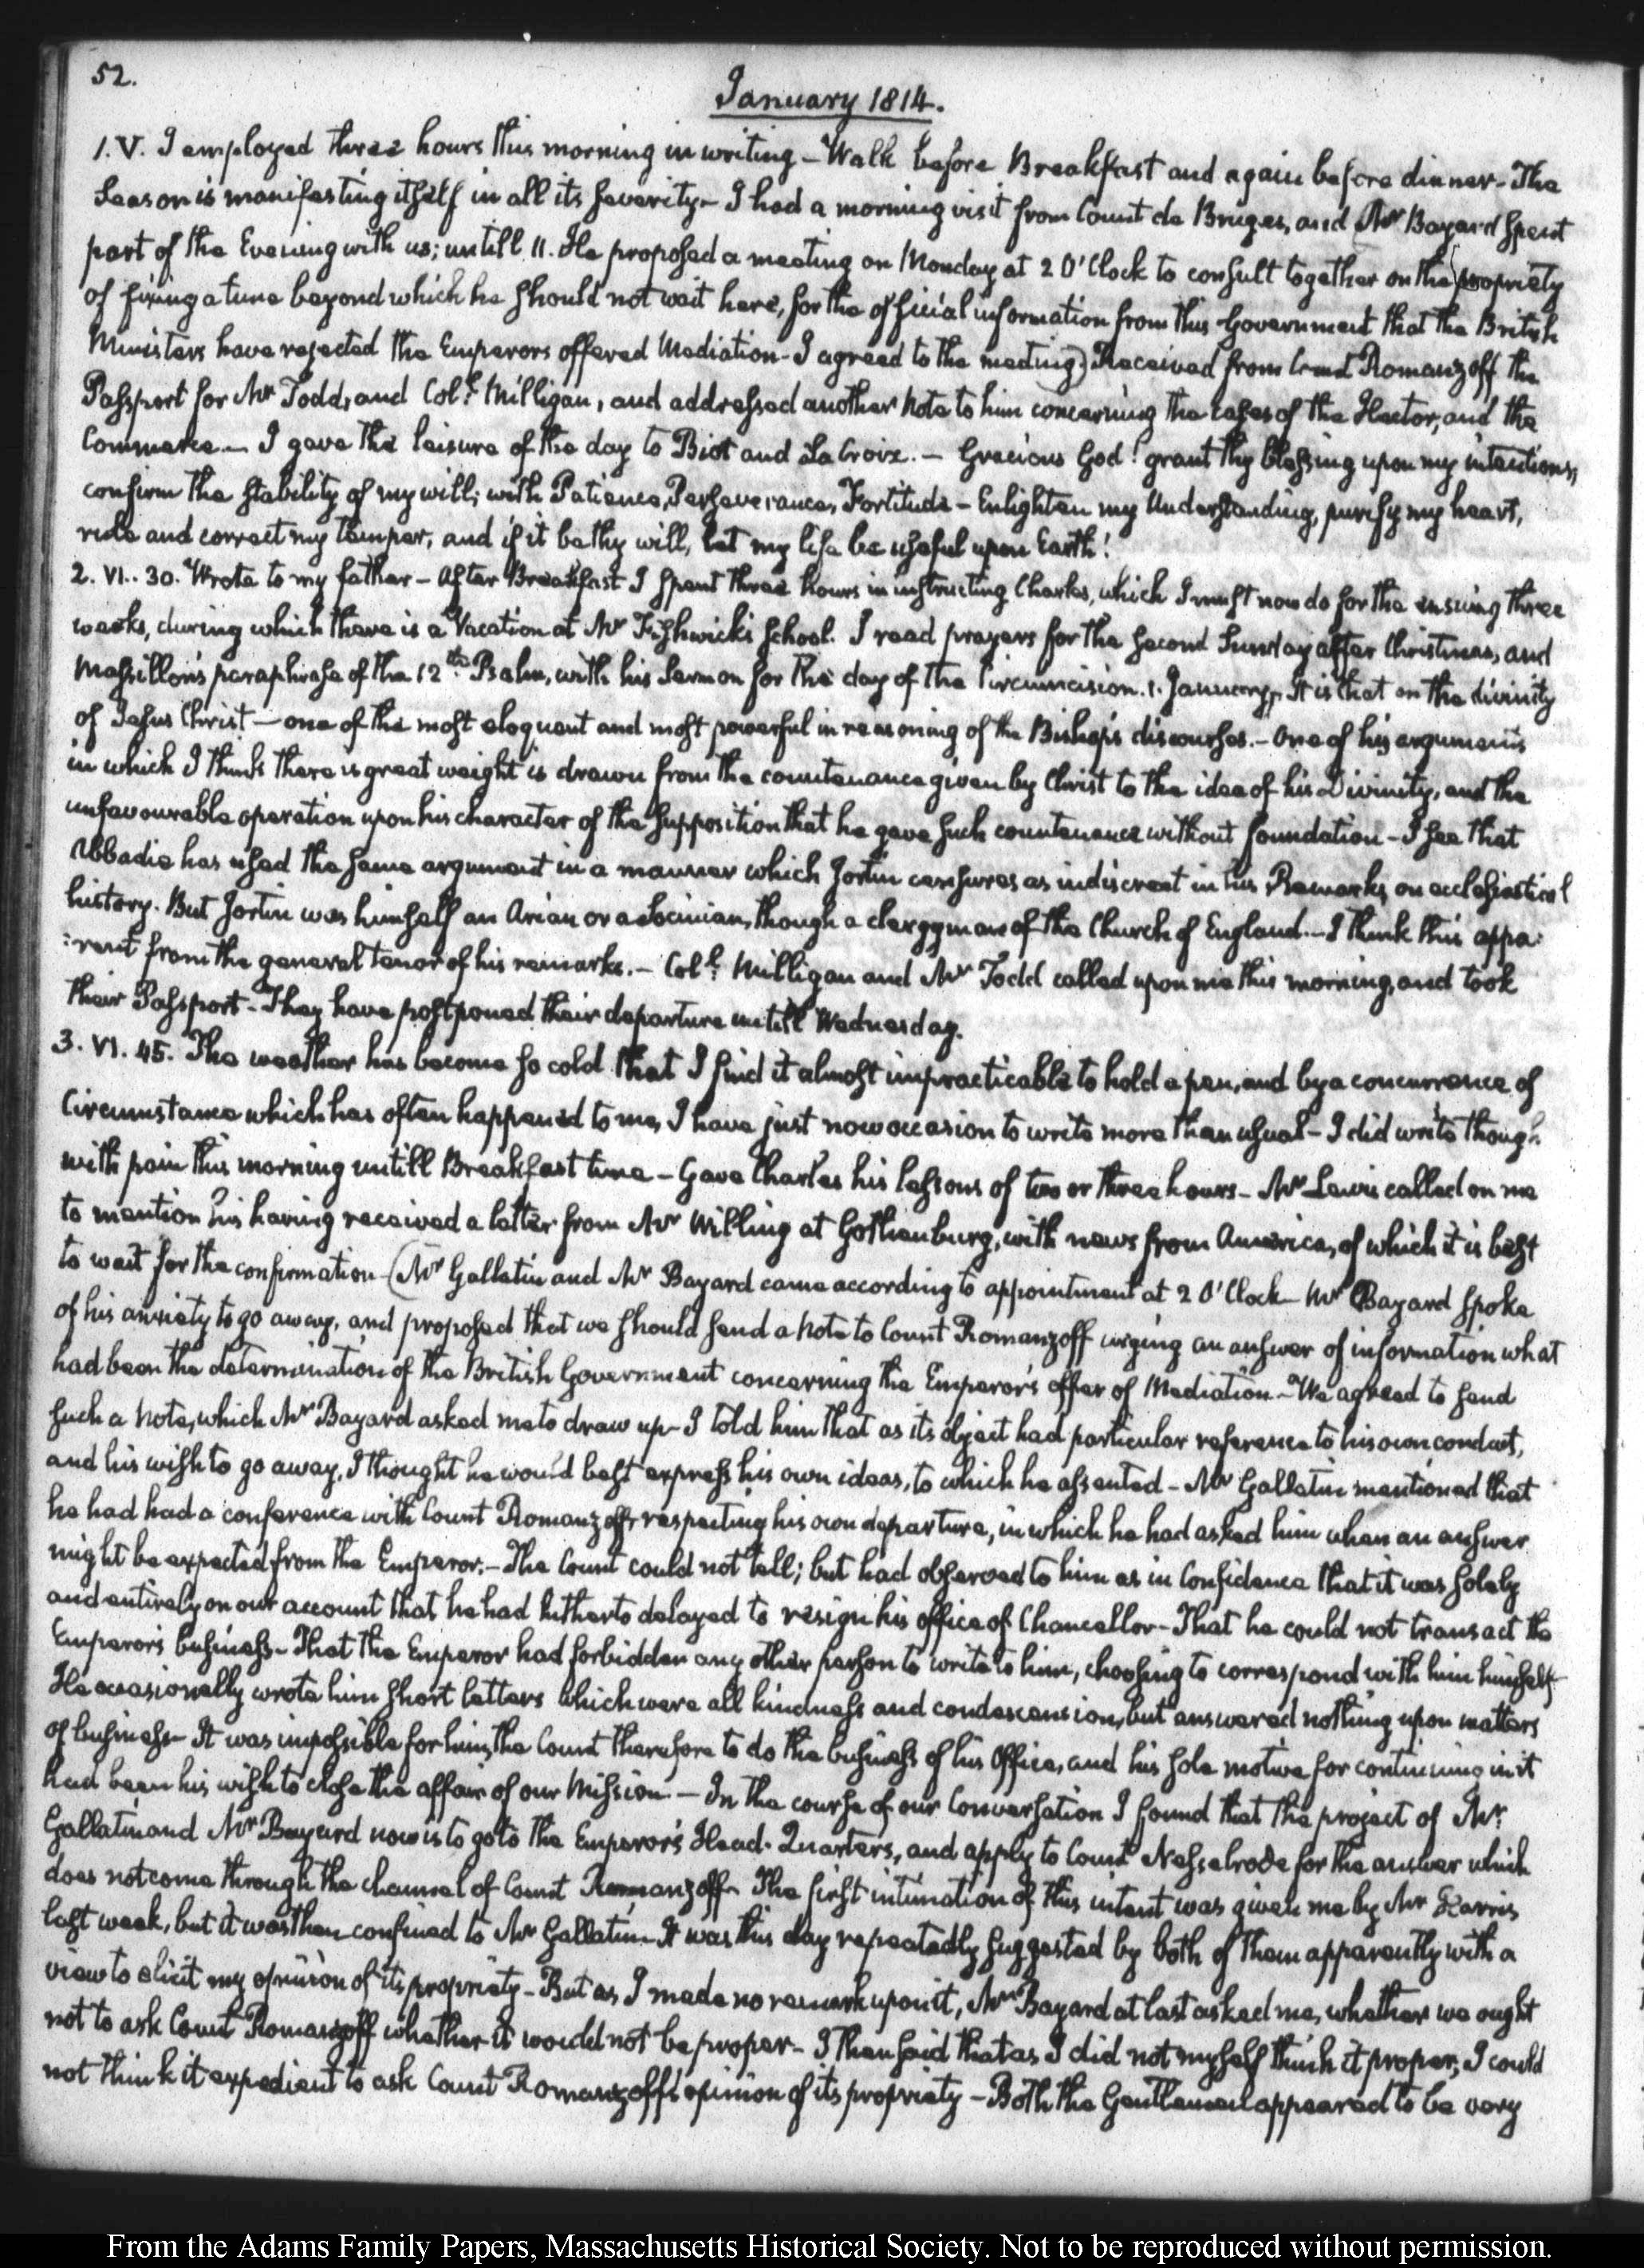 52.
January 1814.
1. V. I employed three hours this morning in writing – Walk before Breakfast and again before dinner – The
Season is manifesting itself in all its severity – I had a morning visit from Count de Bruges, and Mr Bayard spent
part of the Evening with us; untill 11. He proposed a meeting on Monday at 2 O'Clock to consult together on the propriety
of fixing a time beyond which he should not wait here, for the official information from this Government that the British
Ministers have rejected the Emperors offered Mediation – I agreed to the meeting) Received from Count Romanzoff the
Passport for Mr Todd, and Coll. Milligan, and addressed another Note to him concerning the cases of the Hector, and the
Commerce.— I gave the leisure of the day to Biot and La Croix.— Gracious God! grant thy blessing upon my intentions;
confirm the stability of my will; with Patience, Perseverance, Fortitude – Enlighten my Understanding, purify my heart,
rule and correct my temper, and if it be thy will, let my life be useful upon Earth!
2. VI.. 30. Wrote to my father – After Breakfast I spent three hours in instructing Charles, which I must now do for the ensuing three
weeks, during which there is a Vacation at Mr Fishwick's school. I read prayers for the second Sunday after Christmas, and
Massillon's paraphrase of the 12th. Psalm, with his Sermon for the day of the Circumcision. 1. January, It is that on the divinity
of Jesus Christ — one of the most eloquent and most powerful in reasoning of the Bishop's discourses.– One of his arguments
in which I think there is great weight is drawn from the countenance given by Christ to the idea of his Divinity, and the
unfavourable operation upon his character of the supposition that he gave such countenance without foundation – I see that
Abbadie has used the same argument in a manner which Jortin censures as indiscreet in his Remarks on ecclesiastical
history. But Jortin was himself an Arian or a Socinian, though a clergyman of the Church of England.– I think this appa:
:rent from the general tenor of his remarks.– Coll. Milligan and Mr Todd called upon me this morning, and took
their Passport – They have postponed their departure untill Wednesday.
3. VI. 45. The weather has become so cold that I find it almost impracticable to hold a pen, and by a concurrence of
Circumstance which has often happened to me, I have just now occasion to write more than usual – I did write though
with pain this morning untill Breakfast time – Gave Charles his lessons of two or three hours – Mr Lewis called on me
to mention his having received a letter from Mr Willing at Gothenburg, with news from America, of which it is best
to wait for the confirmation – (Mr Gallatin and Mr Bayard came according to appointment at 2 O'Clock – Mr Bayard spoke
of his anxiety to go away, and proposed that we should send a Note to Count Romanzoff urging an answer of information what
had been the determination of the British Government concerning the Emperor's offer of Mediation – We agreed to send
such a Note, which Mr Bayard asked me to draw up – I told him that as its object had particular reference to his own conduct,
and his wish to go away, I thought he would best express his own ideas, to which he assented – Mr Gallatin mentioned that
he had had a conference with Count Romanzoff, respecting his own departure, in which he had asked him when an answer
might be expected from the Emperor.– The Count could not tell; but had observed to him as in Confidence that it was solely
and entirely on our account that he had hitherto delayed to resign his office of Chancellor – That he could not transact the
Emperor's business – That the Emperor had forbidden any other person to write to him, choosing to correspond with him himself
He occasionally wrote him short letters which were all kindness and condescension, but answered nothing upon matters
of business – It was impossible for him, the Count therefore to do the business of his Office, and his sole motive for continuing in it
had been his wish to close the affair of our Mission — In the course of our Conversation I found that the project of Mr.
Gallatin and Mr Bayard now is to go to the Emperor's Head-Quarters, and apply to Count Nesselrode for the answer which
does not come through the channel of Count Romanzoff – The first intimation of this intent was given me by Mr Harris
last week, but it was then confined to Mr Gallatin – It was this day repeatedly suggested by both of them apparently with a
view to elicit my opinion of its propriety – But as I made no remark upon it, Mr Bayard at last asked me, whether we ought
not to ask Count Romanzoff whether it would not be proper – I then said that as I did not myself think it proper, I could
not think it expedient to ask Count Romanzoff's opinion of its propriety – Both the Gentlemen appeared to be very
From the Adams Family Papers, Massachusetts Historical Society. Not to be reproduced without permission.